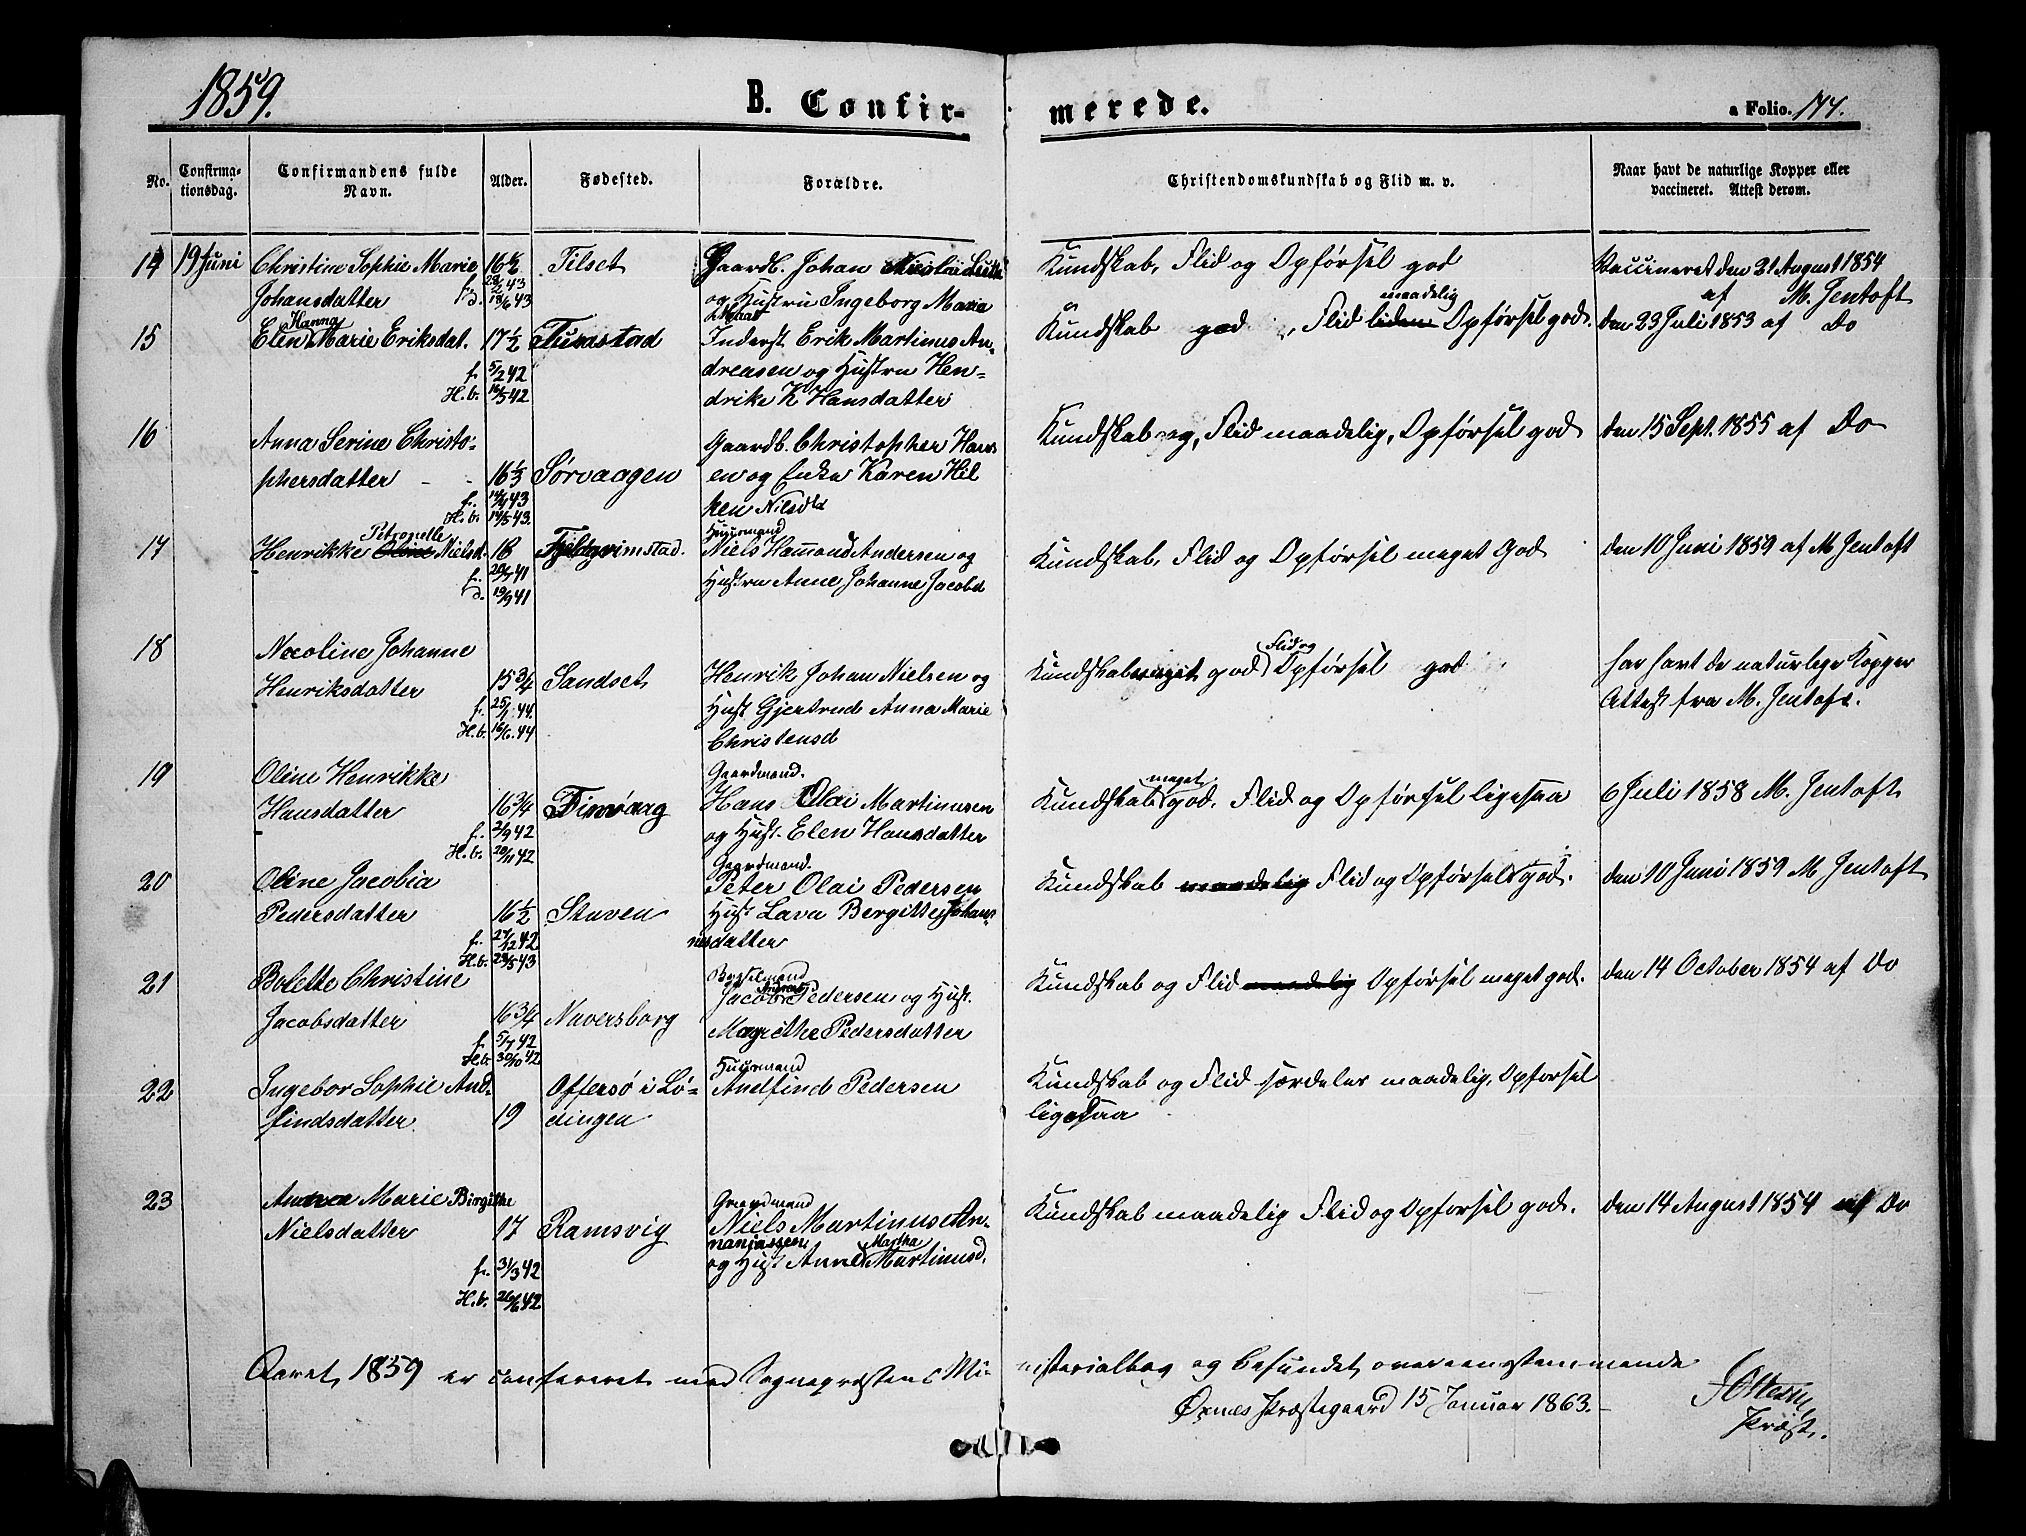 1859.
B. Confir-
merede.
a Folio. 174.
No.
Confirma-
tionsdag.
Confirmandens fulde
Navn.
Alder.
Fødested.
Forældre.
Christendomskundskab og Flid m. v.
Naar havt de naturlige Kopper eller
vaccineret. Attest derom.
14 19 Juni Christine Sophie Marie 16 Tilset Gaardb. Johan Nicolai
Kundskab, Flid og Opførsel god
Vaccineret den 21 August 1854
Johansdatter f. d. 18/6 43 og Hustru Ingeborg Maria
af M. Jentoft
15 Elen Hanna Marie Eriksdat. 17 1/2 Tunstad Inderst Erik Martinus An-
Kundskab god, Flid liden maadelig Opførsel god.
den 23 Juli 1853 af Do
f. 5/2 42 dreasen og Hustru Hen-
H.b. 16/5 42 drike K Hansdatter
16 Anna Serine Christo- Gaardb. Christopher Hans
Kundskab og Flid maadelig, Opførsel god
den 15 Sept. 1855 af Do
phersdatter - - 16 1/3 Sørvaagen en og Enke Karen Hel
f. 43 Nilsdtr
H.b. 14/5 43.
17 Henrikke Petronelle Oline Nielsd. 18 Fjeldgrimstad. Huusmand Niels Hammond Andersen og
Kundskab, Flid og Opførsel meget God
den 10 Juni 1859 af M Jentoft
f. 20/7 41 Hustru Anne Johanne Jacobd
d. 19/9 41
18 Nicoline Johanne
Henriksdatter 15 3/4 Sandset Henrik Johan Nielsen og
Kundskab meget god Flid og Opførsel god
har havt de naturlige Kopper
f. 25/1 44. Hust Gjertrud Anna Marie
Attest fra M. Jentoft.
H.b. 16/6. 44 Christensd
19 Oline Henrikke Gaardmand.
Hansdatter 16 3/4 Finvaag Hans Olai Martinusen
Kundskab meget god, Flid og Opførsel ligesaa
6 Juli 1858 M. Jentoft
f. 2/9 42 og Hust. Elen Hansdatter
H.b. 20/11 42
20 Oline Jacobia Gaardmand. Peter Olai Pedersen
Kundskab maadelig Flid og Opførsel god.
den 10 Juni 1859 M Jentoft
Pedersdatter 16 1/2 Stuven Hust Lava Bergitte Johan-
f. 27/12 42 nesdatter
H.b. 28/5 43
21 Bolette Christine
Jacob Andreas Pedersen og Hust.
Kundskab og Flid maadelig Opførsel meget god.
den 14 October 1854 af Do
Jacobsdatter 16 3/4 Naversborg Magrethe Pedersdatter
f. 5/7 42
H.b. 30/10 42
22 Ingebor Sophie And- Offersø i Lø- Huusmand Andfind Pedersen
Kundskab og Flid særdeles maadelig, Opførsel
findsdatter 19 dingen
ligesaa
23 Andrea Marie Birgithe Gaardmand
Kundskab maadelig Flid og Opførsel god.
den 14 August 1854 af Do
Nielsdatter 17 Ramsvig Niels Martinus An-
naniassen
f. 31/3 42 og Hust Anne Martha Martinusd.
H.b. 26/6 42
Aaret 1859 er confereret med Sognepræstens Mi-
nisterialbog og befundet overeensstemmende
Øxnes Præstegaard 15 Januar 1863.
Præst.